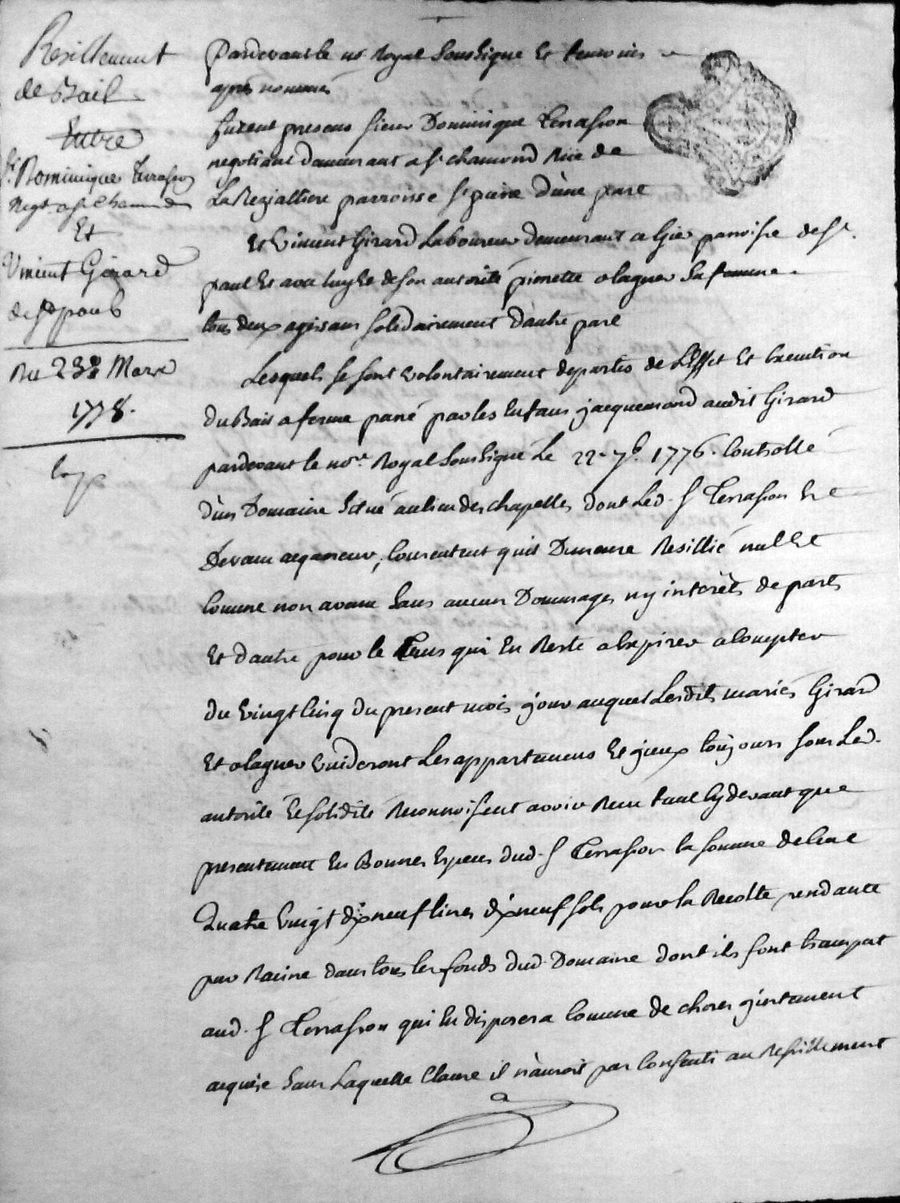 Resillement
de Bail
Entre
Sr. Dominique Terrasson
Negt a st chamond
Et
Vincent Girard
de st paul
Du 23e Mars
1778.
pardevant le nre Royal soussigné Et temoins
apres nommés
furent presens sieur Dominique Terrasson
negotiant demeurant a st chamond Rüe de
La Rejalliere parroisse st pierre d'une part
Et Vincent Girard Laboureur demeurant a Gier parroisse de st.
paul Et avec luy Et de son autorité pierrette olagner sa femme
tous deux agissans solidairement d'autre part
Lesquels se sont volontairement departis de L'effet Et Execution
du Bail a ferme passé par les Enfans jacquemond audit Girard
pardevant le nore. Royal soussigné Le 22 7b. 1776. Controllé
d'un Domaine situé au lieu des chapelles dont Led. Sr Terrasson Est
devenu acquereur, Consentent qu'il Demeure Resillié nul Et
Comme non avenu sans aucun Dommages ny interêts de parts
Et d'autre pour le tems qui En Reste a Expirer a Compter
du vingt Cinq du present mois jour auquel Lesdits mariés Girard
Et olagner vuideront Les appartemens Et yceux toujours sous Led.
autorité Et solidité Reconnoissent avoir Reçu tant Cy devant que
presentement En Bonnes Especes dud. Sr Terrasson la somme de Cent
Quatre Vingt dix neuf livres dix neuf sols pour la Recolte pendante
par Racine dans tous les fonds dud. Domaine dont ils font transport
aud. Sr Terrasson qui En disposera Comme de choses justement
acquise sans Laquelle Clause il n'auroit pas Consenti au Resillement